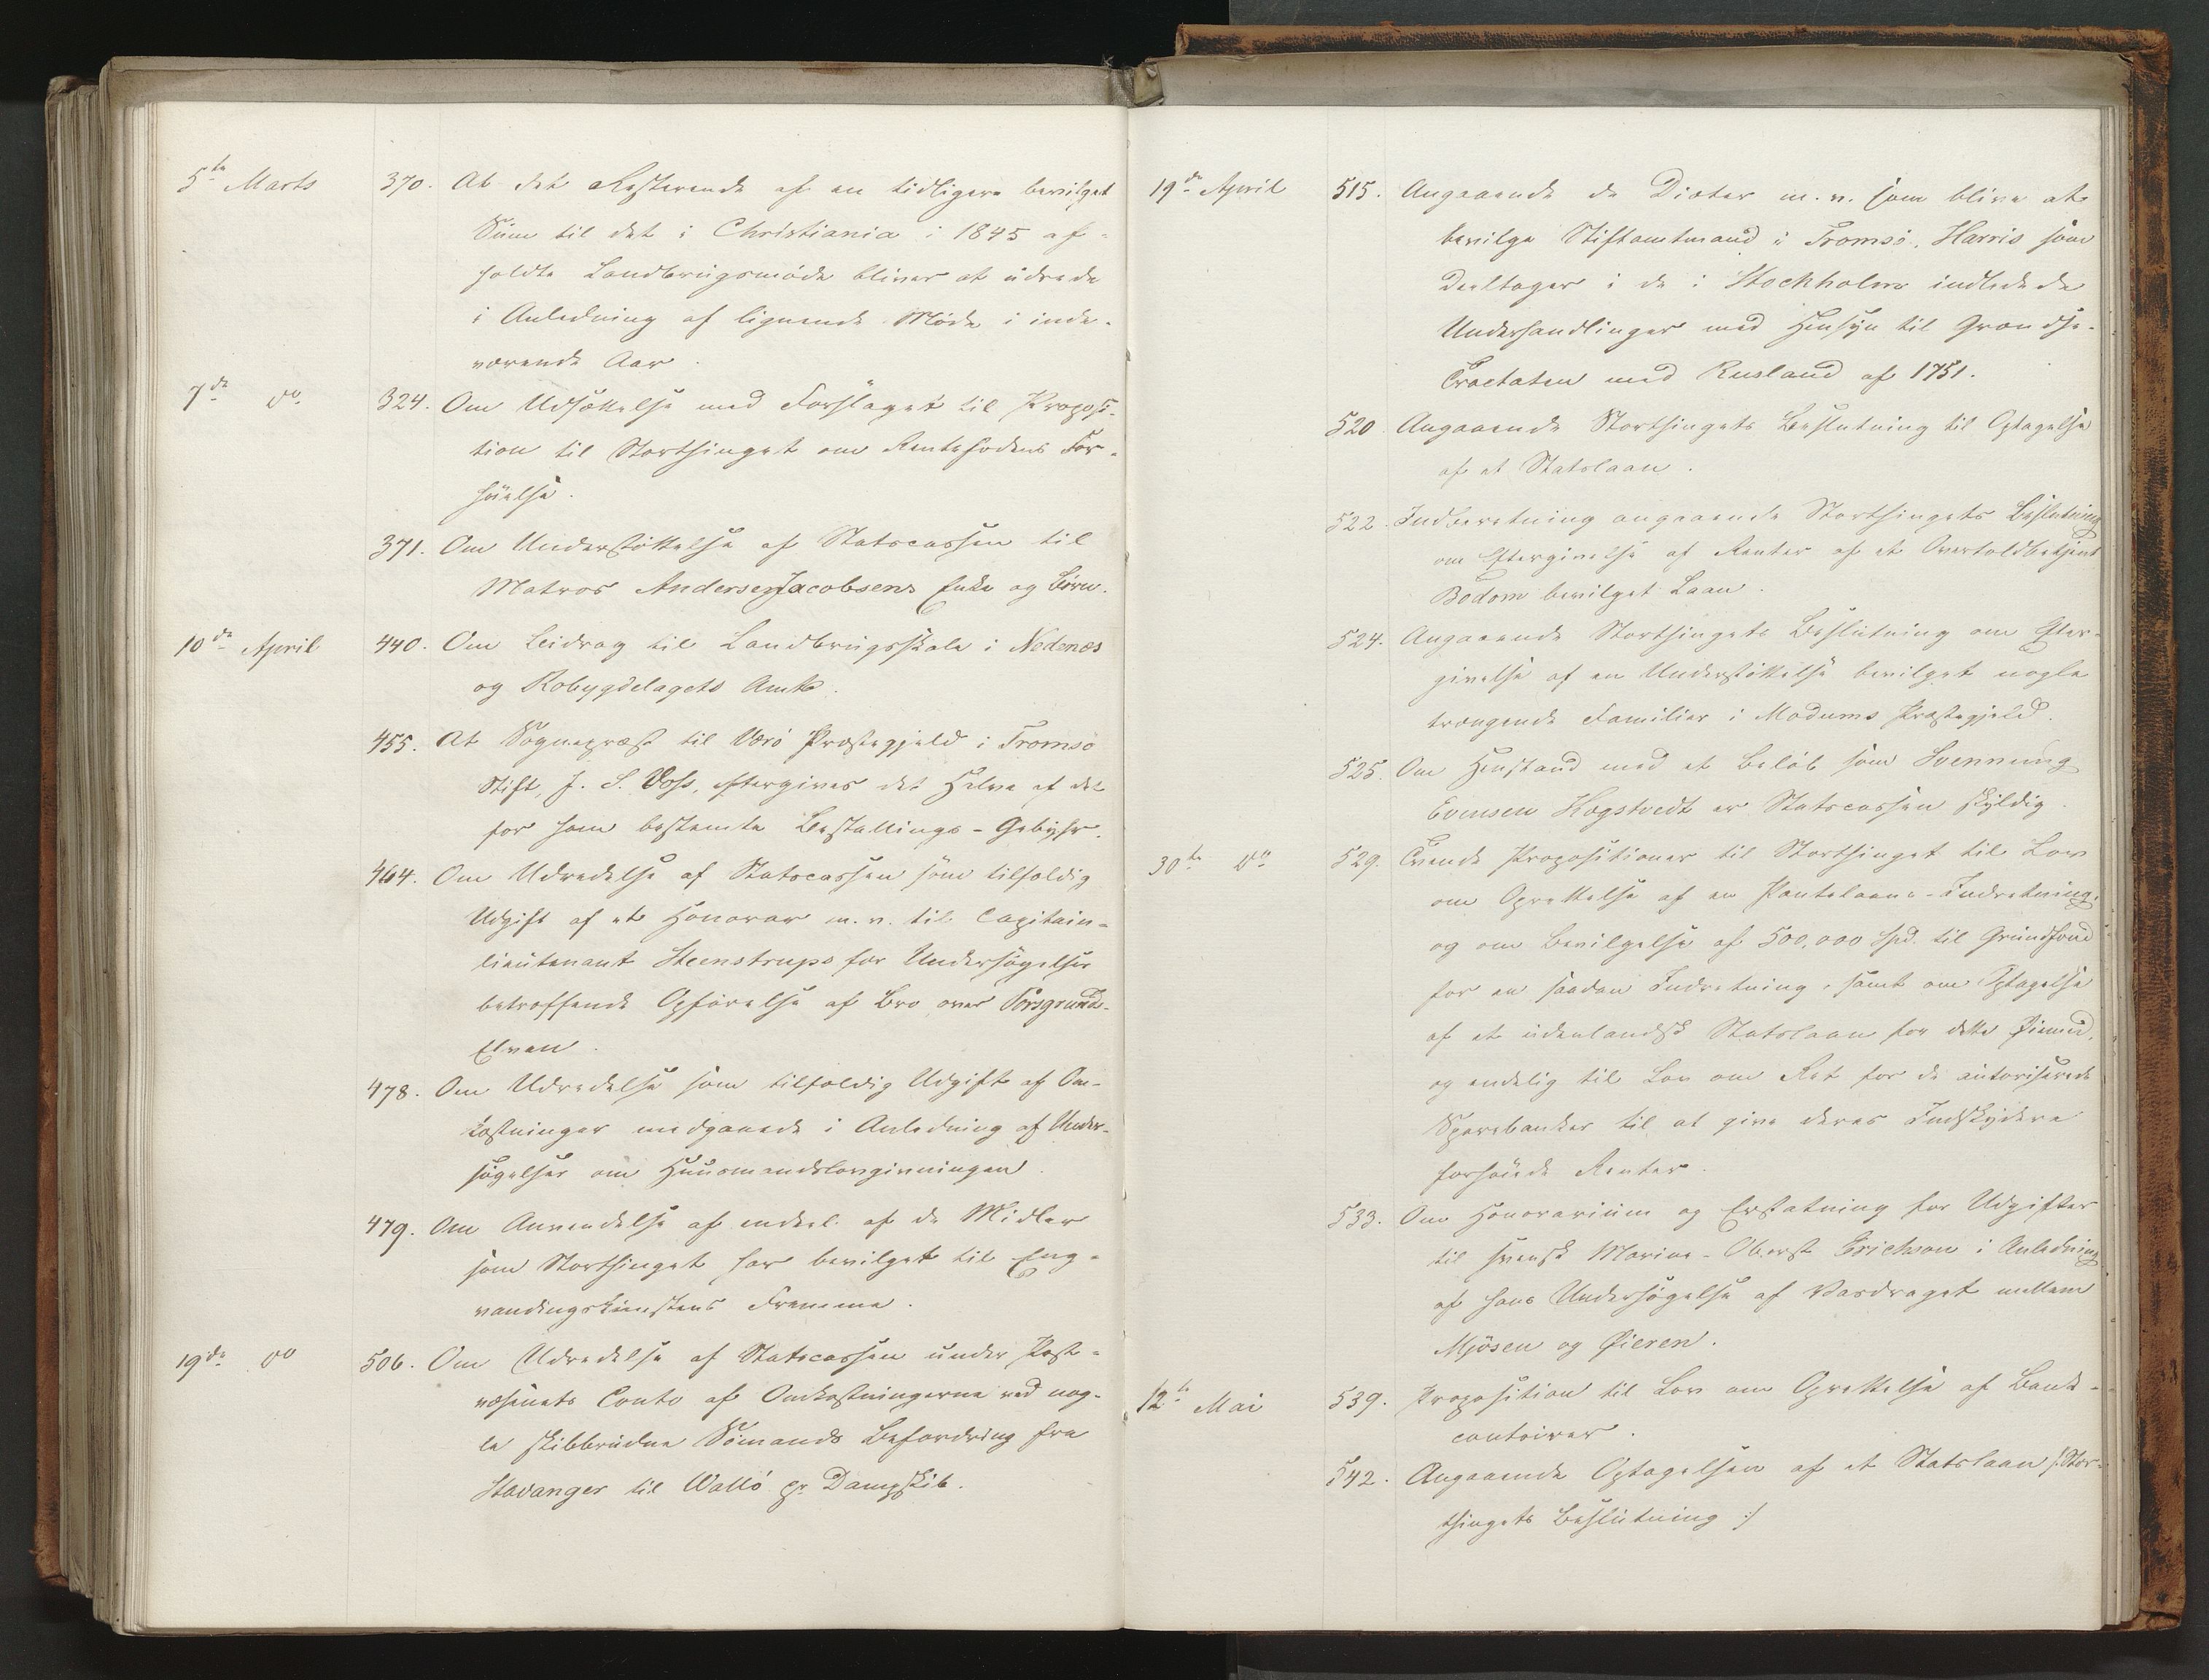 5te Marts 370. At det Resterende af en tidligere bevilget
Sum til det i Christiania i 1845 af-
holdte Landbrugsmøde bliver at udrede
i Anledning af lignende Møde i inde-
værende Aar.
7de do 324. Om Udsættelse med Forslaget til Proposi-
tion til Storthinget om Rentefodens For-
høielse.
371. Om Understøttelse af Statscassen til
Matros Andersen Jacobsens Enke og Børn.
10de April 440. Om Bidrag til Landbrugsskole i Nedenæs
og Robygdelagets Amt.
455. At Sognepræst til Værø Præstegjeld i Tromsø
Stift, J. S. Voss, eftergives det Halve af det
for ham bestemte Bestallings-Gebyhr.
464. Om Udredelse af Statscassen som tilfældig
Udgift af et Honorar m. v. til Capitain-
lieutenant Steenstrups for Undersøgelser
betræffende Opførelse af Bro over Porsgrunds-
Elven.
478. Om Udredelse som tilfældig Udgift af Om-
kostninger medgaaede i Anledning af Under-
søgelser om Huusmandslovgivningen.
479. Om Anvendelse af endeel af de Midler
som Storthinget har bevilget til Eng-
vandingskunstens Fremme.
19de do 506. Om Udredelse af Statscassen under Post-
væsenets Conto af Omkostningerne ved nog-
le skibbrudne Sømænds Befordring fra
Stavanger til Vallø pr. Dampskib.
19de April 515. Angaaende de Diæter m. v. som blive at
bevilge Stiftamtmand i Tromsø, Harris som
Deeltager i de i Stockholm indledede
Underhandlinger med Hensyn til Grændse-
Tractaten med Rusland af 1751.
520. Angaaende Storthingets Beslutning til Optagelse
af et Statslaan.
522. Indberetning angaaende Storthingets Beslutning
om Eftergivelse af Renter af et Overtoldbetjent
Bodom bevilget Laan.
524. Angaaende Storthingets Beslutning om Efter-
givelse af en Understøttelse bevilget nogle
trængende Familier i Modums Præstegjeld.
525. Om Henstand med et Beløb som Svennung
Evensen Høgstvedt er Statscassen skyldig.
30te do 529. Tvende Propositioner til Storthinget til Lov
om Oprettelse af en Pantelaane-Indretning,
og om Bevilgelse af 500,000 Spd. til Grundfond
for en saadan Indretning, samt om Optagelse
af et udenlandsk Statslaan for dette Øiemed,
og endelig til Lov om Ret for de autoriserede
Sparebanker til at give deres Indskydere
forhøiede Renter.
533. Om Honorarium og Erstatning for Udgifter
til svensk Marine-Oberst Erichson i Anledning
af hans Undersøgelse af Vasdraget mellem
Mjøsen og Øieren.
12te Mai 539. Proposition til Lov om Oprettelse af Bank-
contoirer.
542. Angaaende Optagelsen af et Statslaan /: Stor-
thingets Beslutning :/